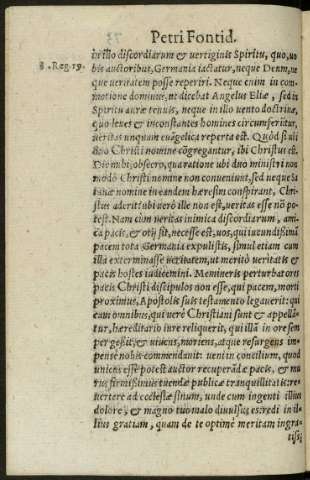 Petri Fontid.
in illo discordiarum & vertiginis Spiritu, quo, uo
3. Reg. 19. bis auctoribus, Germania iactatur, neque Deum, ne
que veritatem posse reperiri. Neque enim in com-
motione dominus, ut dicebat Angelus Eliæ, sed in
Spiritu auræ tenuis, neque in illo uento doctrinæ,
quo leues & inconstantes homines circumferuntur,
ueritas unquam euāgelica reperta est. Quòd si ubi
duo Christi nomine cōgregantur, ibi Christus est.
Dic mihi, obsecro, qua ratione ubi duo ministri non
modò Christi nomine non conueniunt, sed neque sa
tanæ nomine in eandem hæresim conspirant, Chri-
stus aderit? ubi uerò ille non est, ueritas esse nō po-
test. Nam cùm ueritas inimica discordiarum, ami-
ca pacis, & otij sit, necesse est, uos, qui iucundissimā
pacem tota Germania expulistis, simul etiam cum
illa exterminasse ueritatem, ut meritò ueritatis &
pacis hostes iudicemini. Memineris perturbatores
pacis Christi discipulos non esse, qui pacem, morti
proximus, Apostolis suis testamento legauerit: qui
eam omnibus, qui uerè Christiani sunt & appellā-
tur, hæreditario iure reliquerit, qui illā in ore sem
per gessit, & uiuens, moriens, atque resurgens im-
pensè nobis commendauit: ueni in concilium, quod
unicus esse potest auctor recuperādæ pacis, & mu
rus firmissimus tuendæ publicæ tranquillitatis: re-
uertere ad ecclesiæ sinum, unde cum ingenti illius
dolore, & magno tuo malo diuulsus es: redi in il-
lius gratiam, quam de te optimè meritam ingra-
tissi